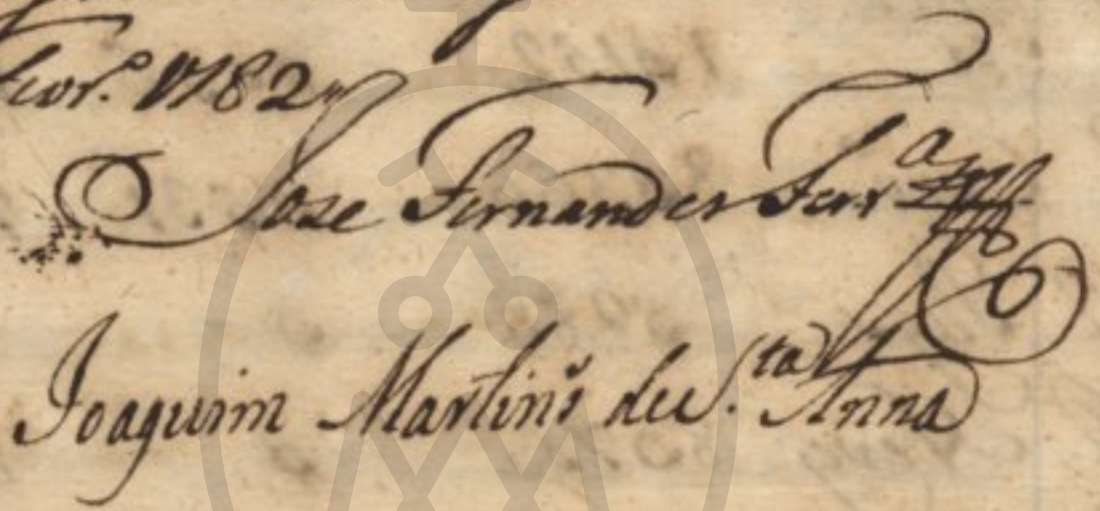 Fevr.º 1782
Joze Fernandes Ferr.ª
Joaquim Martin.s de S.ta Anna